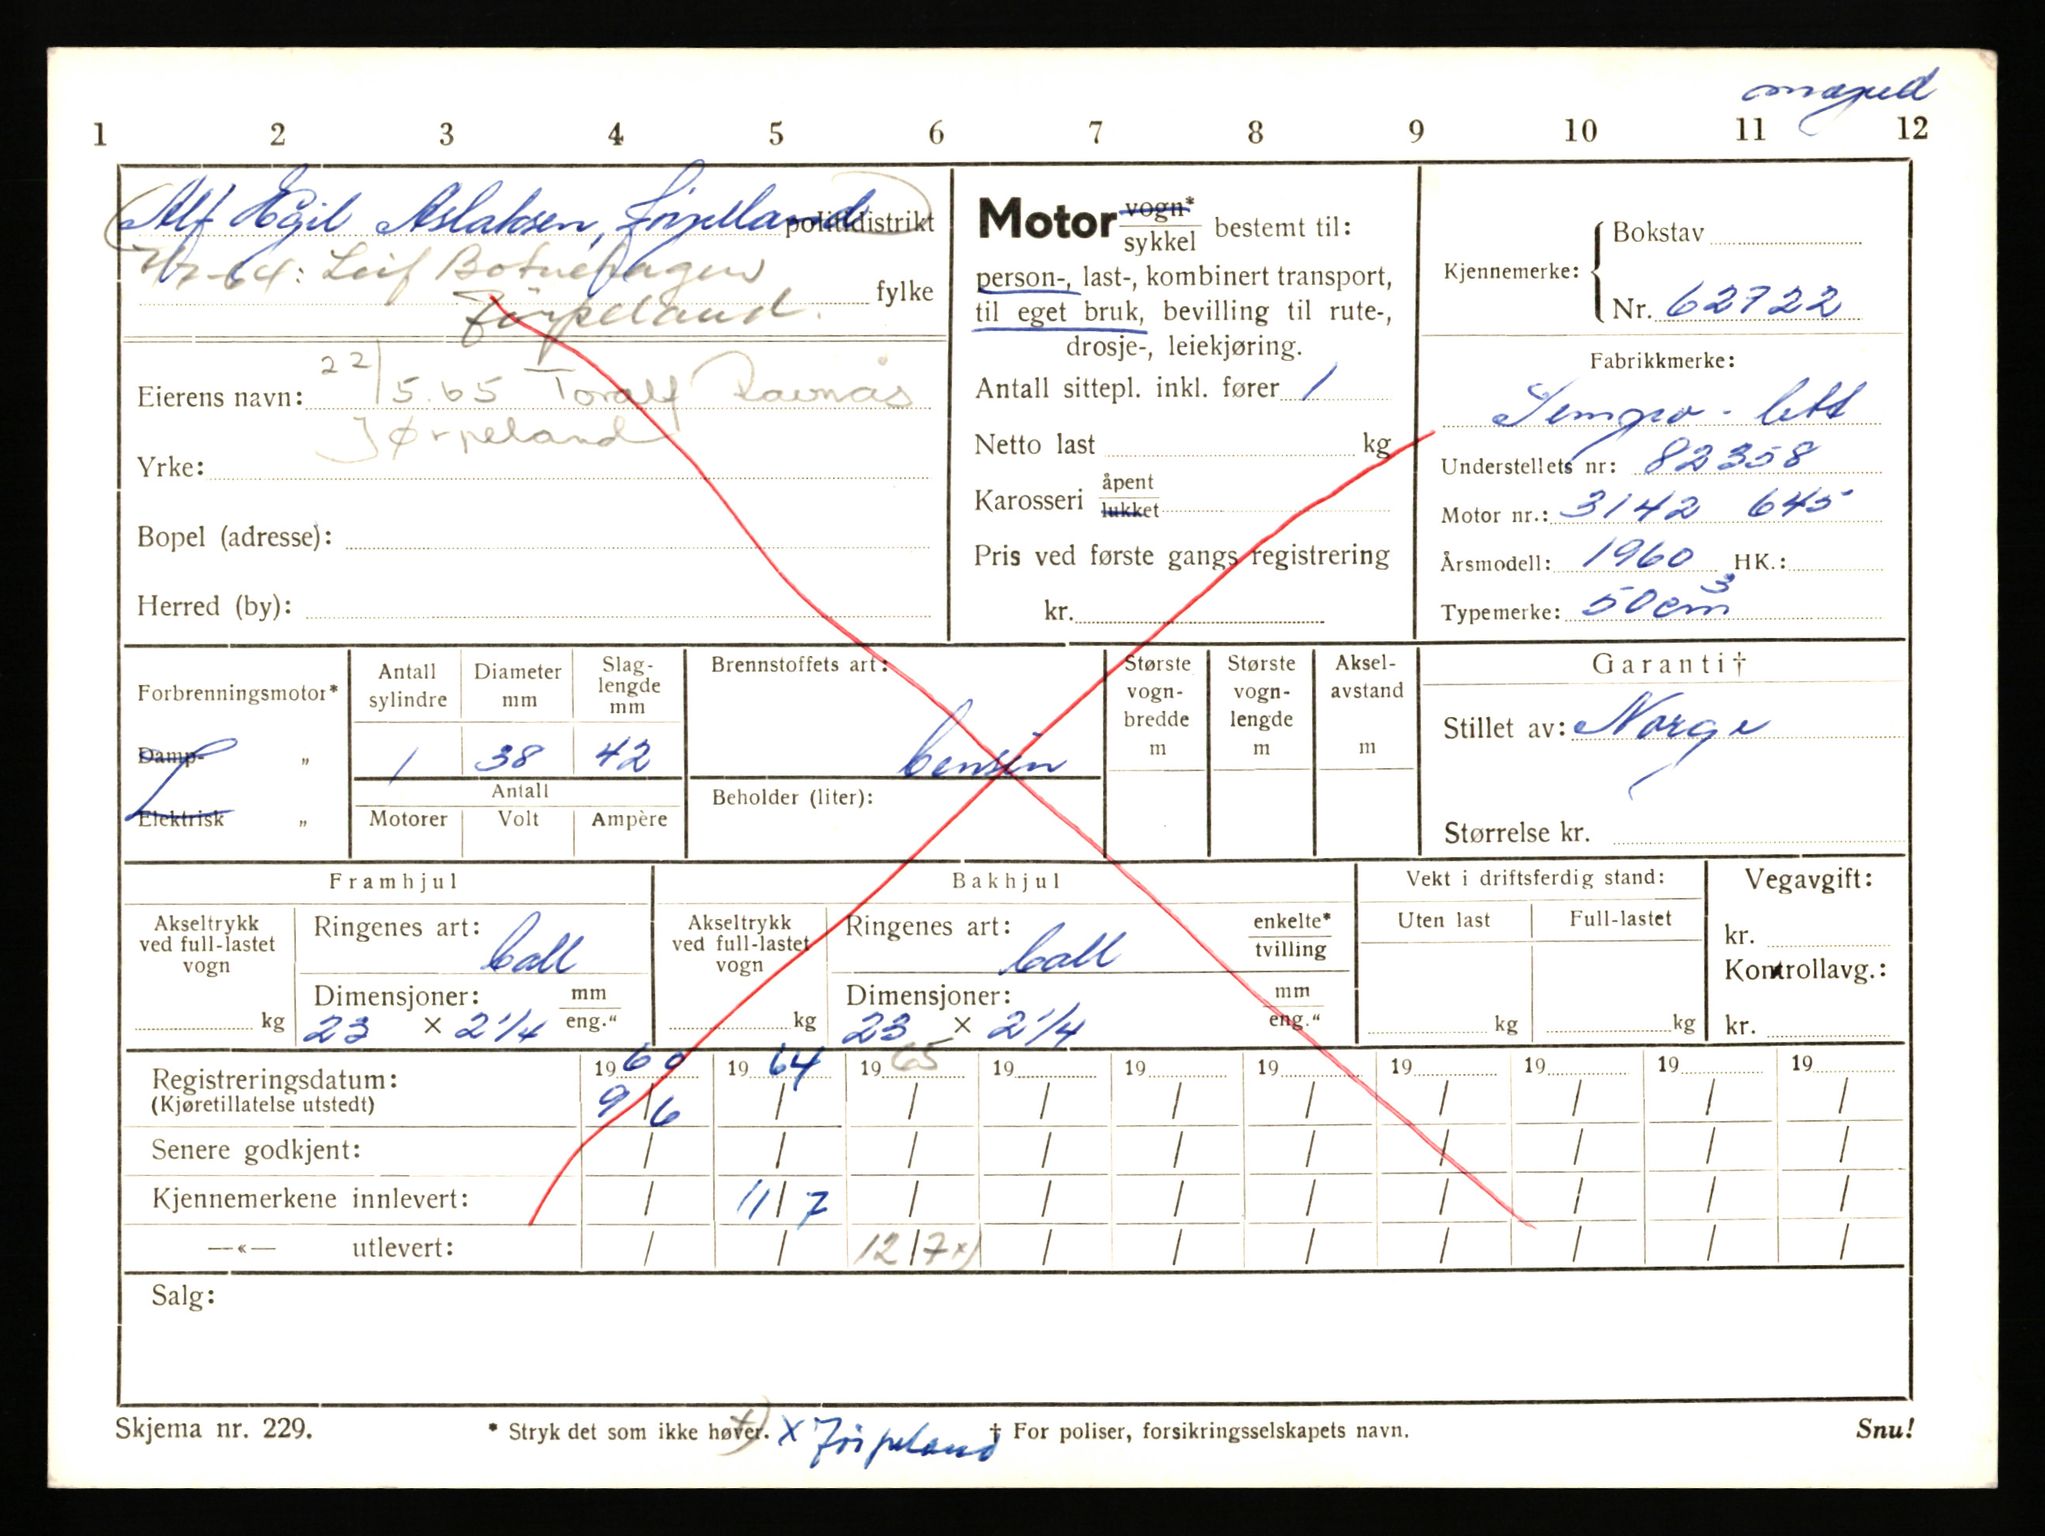 moped
1 2 3 4 5 6 7 8 9 10 11 12
Alf Egil Aslaksen, Jørpeland politidistrikt
7/7-64: Leif Botnehagen
Jørpeland. fylke
Eierens navn: 22/5.65 Toralf Ravnås
Jørpeland
Yrke:
Bopel (adresse):
Herred (by):
Motor vogn* / sykkel bestemt til:
person-, last-, kombinert transport,
til eget bruk, bevilling til rute-,
drosje-, leiekjøring.
Antall sittepl. inkl. fører 1
Netto last kg
Karosseri åpent / lukket
Pris ved første gangs registrering
kr.
Kjennemerke: { Bokstav
Nr. 62722
Fabrikkmerke:
Tempo - lett
Understellets nr: 82358
Motor nr.: 3142 645
Årsmodell: 1960 HK.:
Typemerke: 50 cm³
Forbrenningsmotor*
Damp- „
Elektrisk „
Antall sylindre
Diameter mm
Slag-
lengde
mm
1 38 42
Antall
Motorer Volt Ampère
Brennstoffets art:
bensin
Beholder (liter):
Største
vogn-
bredde
m
Største
vogn-
lengde
m
Aksel-
avstand
m
Garanti†
Stillet av: Norge
Størrelse kr.
Framhjul
Akseltrykk
ved full-lastet
vogn
kg
Ringenes art:
ball
Dimensjoner: mm / eng."
23 × 2 1/4
Bakhjul
Akseltrykk
ved full-lastet
vogn
kg
Ringenes art: enkelte* / tvilling
ball
Dimensjoner: mm / eng."
23 × 2 1/4
Vekt i driftsferdig stand:
Uten last Full-lastet
kg kg
Vegavgift:
kr.
Kontrollavg.:
kr.
1960 1964 1965 19 19 19 19 19 19 19
Registreringsdatum: 9/6 / / / / / / / / /
(Kjøretillatelse utstedt)
Senere godkjent: / / / / / / / / / /
Kjennemerkene innlevert: / 11/7 / / / / / / / /
—«— utlevert: / / 12/7 x) / / / / / / /
Salg:
Skjema nr. 229. * Stryk det som ikke høver. x) x Jørpeland † For poliser, forsikringsselskapets navn. Snu!